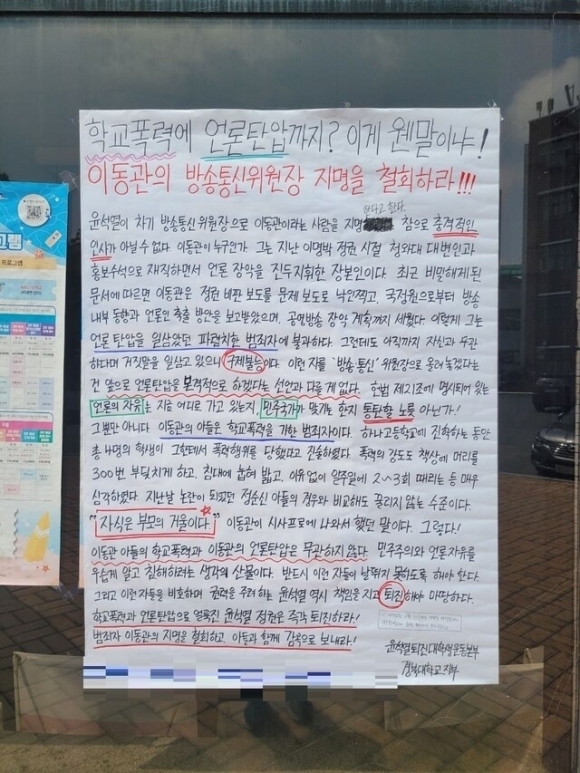 학교폭력에 언론탄압까지? 이게 웬말이냐!
이동관의 방송통신위원장 지명을 철회하라!!!
한다고 한다.
윤석열이 차기 방송통신위원장으로 이동관이라는 사람을 지명 참으로 충격적인
인사가 아닐 수 없다. 이동관이 누구인가. 그는 지난 이명박 정권 시절 청와대 대변인과
홍보수석으로 재직하면서 언론 장악을 진두지휘한 장본인이다. 최근 비밀해제된
문서에 따르면 이동관은 정권 비판 보도를 문제 보도로 낙인찍고, 국정원으로부터 방송
내부 동향과 언론인 축출 방안을 보고받았으며, 공영방송 장악 계획까지 세웠다. 이렇게 그는
언론 탄압을 일삼았던 파렴치한 범죄자에 불과하다. 그런데도 아직까지 자신과 무관
하다며 거짓말을 일삼고 있으니 구제불능이다. 이런 자를 '방송통신' 위원장으로 올려놓겠다는
건 앞으로 언론탄압을 본격적으로 하겠다는 선언과 다를 게 없다. 헌법 제21조에 명시되어 있는
언론의 자유는 지금 어디로 가고 있는지, 민주국가가 맞기는 한지 통탄할 노릇 아닌가!
그뿐만 아니다. 이동관의 아들은 학교폭력을 가한 범죄자이다. 하나고등학교에 진학하는 동안
총 4명의 학생이 그한테서 폭력행위를 당했다고 진술하였다. 폭력의 강도도 책상에 머리를
300번 부딪치게 하고, 침대에 눕혀 밟고, 이유없이 일주일에 2~3회 때리는 등 매우
심각하였다. 지난날 논란이 되었던 정순신 아들의 경우와 비교해도 꿀리지 않는 수준이다.
"자식은 부모의 거울이다" 이동관이 시사프로에 나와서 했던 말이다. 그렇다!
이동관 아들의 학교폭력과 이동관의 언론탄압은 무관하지 않다. 민주주의와 언론자유를
우습게 알고 침해하려는 생각의 산물이다. 반드시 이런 자들이 날뛰지 못하도록 해야 한다.
그리고 이런 자들을 비호하며 권력을 주려 하는 윤석열 역시 책임을 지고 퇴진해야 마땅하다.
학교폭력과 언론탄압으로 얼룩진 윤석열 정권은 즉각 퇴진하라!
범죄자 이동관의 지명을 철회하고, 아들과 함께 감옥으로 보내라!
윤석열퇴진대학생운동본부
경북대학교 지부